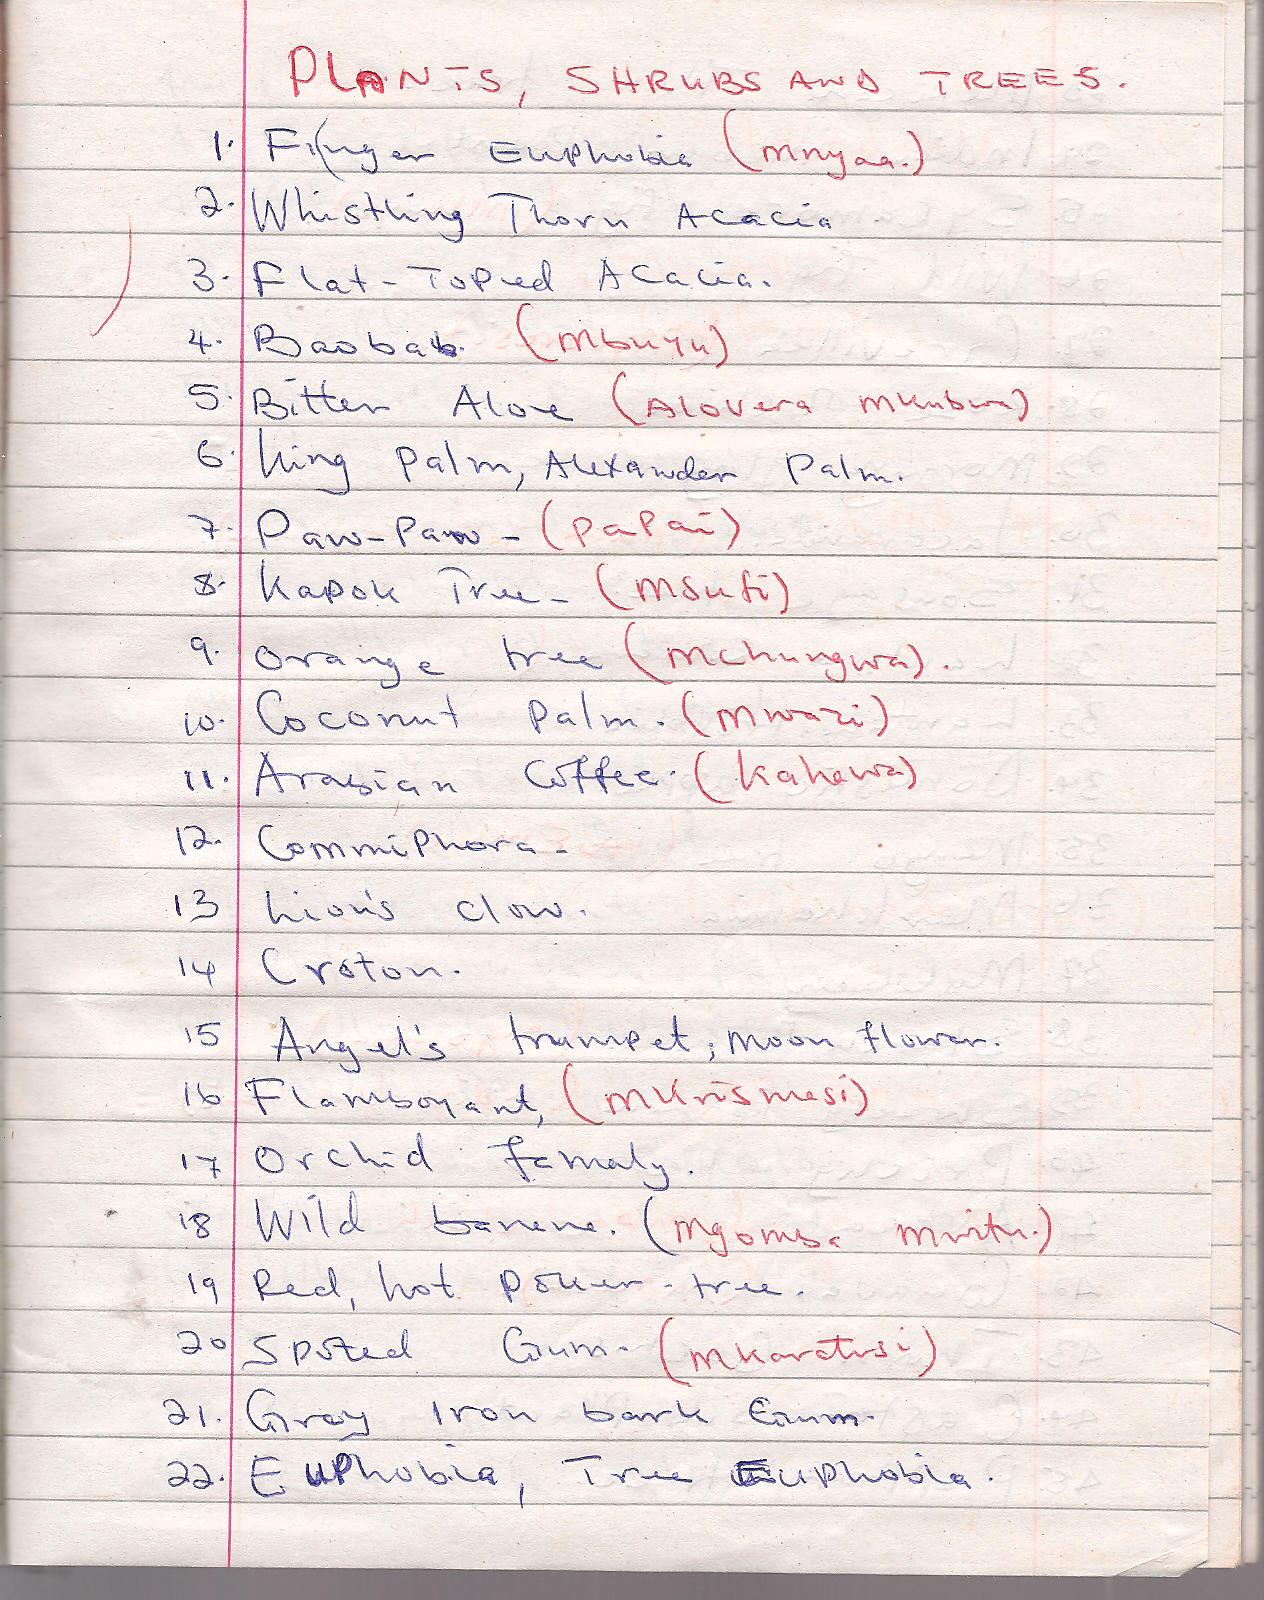 PLANTS, SHRUBS AND TREES.
1. Finger Euphobia (Mnyaa.)
2. Whistling Thorn Acacia
3. Flat-Toped Acacia.
4. Baobab. (Mbuyu)
5. Bitter Aloe (Alovera Mkubwa)
6. King Palm, Alexander Palm.
7. Paw-Paw - (Papai)
8. Kapok Tree - (Msufi)
9. Orange tree (Mchungwa).
10. Coconut Palm. (Mwazi)
11. Arabian Coffee. (Kahawa)
12. Commiphora -
13 Lion's clow.
14 Croton.
15 Angel's trumpet, Moon flower.
16 Flamboyant, (MKrismasi)
17 Orchid famaly.
18 Wild banene. (Mgomba mwitu.)
19 Red, hot poker-tree.
20 Spoted Gum. (Mkaratusi)
21. Gray Iron bark Gum.
22. Euphobia, Tree Euphobia.